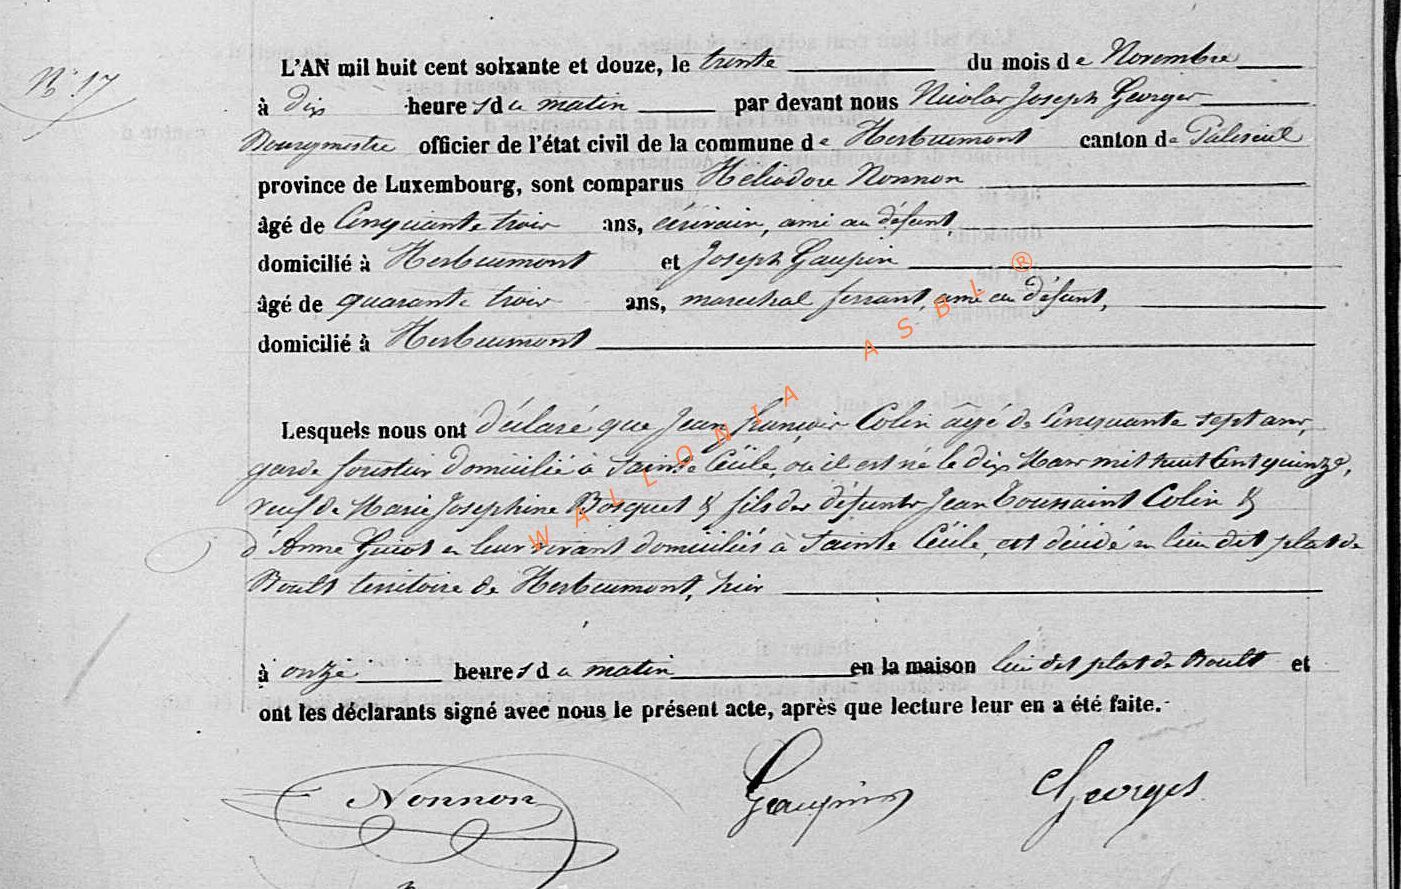 N° 17
L'AN mil huit cent soixante et douze, le trente du mois de Novembre
à dix heures du matin par devant nous Nicolas Joseph Georges
Bourgmestre officier de l'état civil de la commune de Herbeumont canton de Paliseul
province de Luxembourg, sont comparus Héliodore Nonnon
âgé de Cinquante trois ans, écrivain, ami au défunt,
domicilié à Herbeumont et Joseph Gaupin
âgé de quarante trois ans, marechal ferrant, ami au défunt,
domicilié à Herbeumont
Lesquels nous ont déclaré que Jean françois Colin âgé de Cinquante sept ans,
garde forestier domicilié à Sainte Cécile, où il est né le dix Mars mil huit Cent quinze,
veuf de Marie Josephine Bosquet & fils des défunts Jean Toussaint Colin &
d'Anne Guiot en leur vivant domiciliés à Sainte Cécile, est décédé en lieu dit plat de
Boult territoire de Herbeumont, hier
à onze heures du matin en la maison lieu dit plat de Boult et
ont les déclarants signé avec nous le présent acte, après que lecture leur en a été faite.
Nonnon Gaupin Georges
WALLONIA ASBL ®